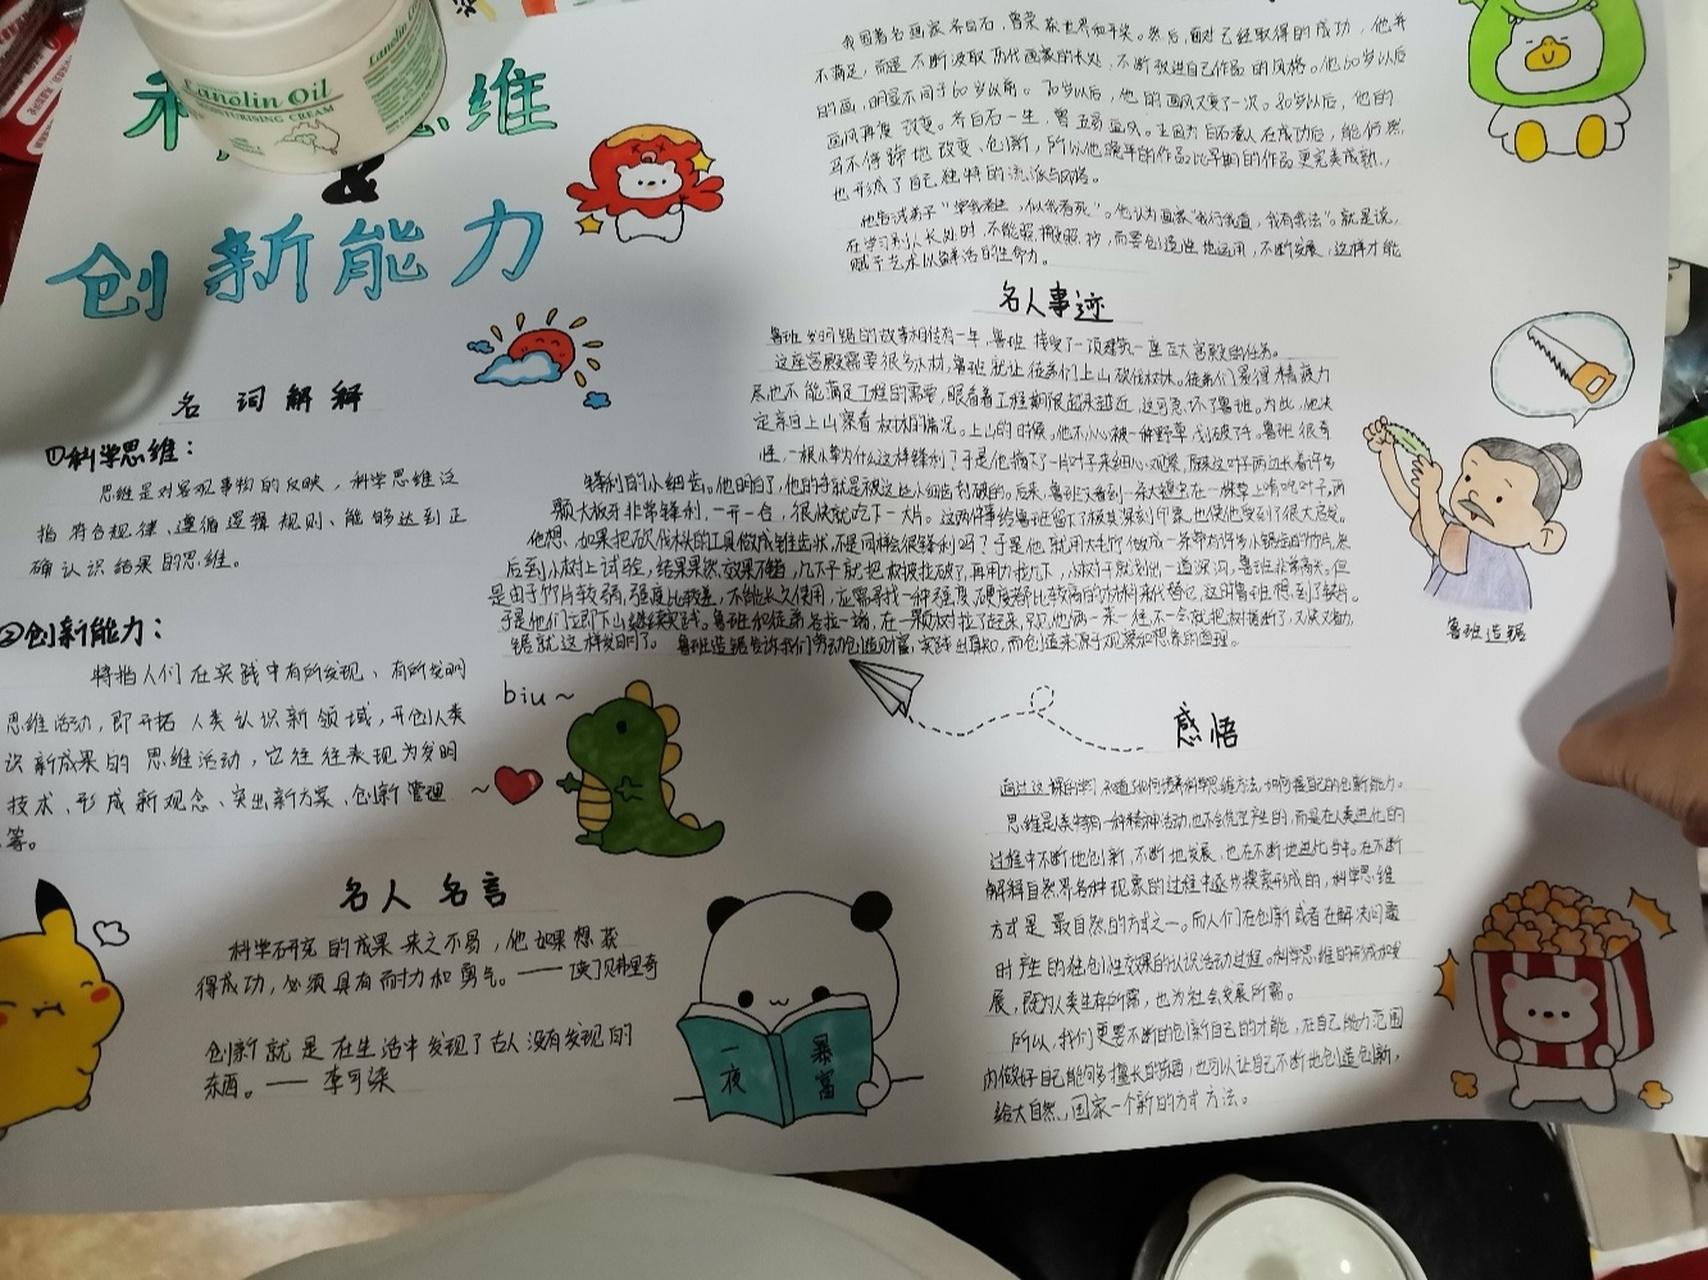 Lanolin Oil
MOISTURISING CREAM
Lanolin
维
&
创新能力
名词解释
①科学思维：
思维是对客观事物的反映，科学思维泛
指符合规律、遵循逻辑规则、能够达到正
确认识结果的思维。
②创新能力：
特指人们在实践中有所发现、有所发明
思维活动，即开拓人类认识新领域，开创人类
识新成果的思维活动，它往往表现为发明
技术、形成新观念、突出新方案、创新管理
等。
名人名言
科学研究的成果来之不易，他如果想获
得成功，必须具有耐力和勇气。——
创新就是在生活中发现了古人没有发现的
东西。—— 李可染
biu~
~
一夜
暴富
我国著名画家齐白石，曾荣获世界和平奖。然后，面对已经取得的成功，他并
不满足，而是不断汲取历代画家的长处，不断改进自己作品的风格。他60岁以后
的画，明显不同于60岁以前。70岁以后，他的画风又变了一次。80岁以后，他的
画风再度改变。齐白石一生，曾五易画风。正因为白石老人在成功后，能仍然
马不停蹄地改变、创新，所以他晚年的作品比早期的作品更完美成熟，
也形成了自己独特的流派与风格。
他告诫弟子“学我者生，似我者死”。他认为画家“我行我道，我有我法”。就是说，
在学习别人长处时，不能照搬照抄，而要创造性地运用，不断发展，这样才能
赋予艺术以鲜活的生命力。
名人事迹
鲁班发明锯的故事相传有一年，鲁班接受了一项建筑一座巨大宫殿的任务。
这座宫殿需要很多木材，鲁班就让徒弟们上山砍伐树木。徒弟们累得精疲力
尽也不能满足工程的需要，眼看着工程期限越来越近，这可急坏了鲁班。为此，他决
定亲自上山察看树林的情况。上山的时候，他不小心被一种野草划破了手。鲁班很奇
怪，一根小草为什么这样锋利？于是他摘下了一片叶子来细心观察，原来这叶子两边长着许多
锋利的小细齿。他明白了，他的手就是被这些小细齿划破的。后来，鲁班又看到一条大蝗虫在一株草上啃吃叶子，两
颗大板牙非常锋利，一开一合，很快就吃下一大片。这两件事给鲁班留下了极其深刻印象，也使他受到了很大启发。
他想，如果把砍伐木头的工具做成锯齿状，不是同样会很锋利吗？于是他就用大毛竹做成一条带有许多小锯齿的竹片，然
后到小树上试验，结果果然效果不错，几下子就把树皮拉破了，再用力拉几下，小树干就划出一道深沟，鲁班非常高兴。但
是由于竹片较弱，强度比较差，不能长久使用，应需寻找一种强度、硬度都比较高的材料来代替它，这时鲁班想到了铁片。
于是他们立即下山继续实践。鲁班和徒弟各拉一端，在一颗树拉了起来，只见他俩一来一往，不一会就把树锯断了，又快又省力，
锯就这样发明了。 鲁班造锯告诉我们劳动创造财富，实践出真知，而创造来源于观察和想象的道理。
鲁班造锯
感悟
通过这一课的学习，知道了如何培养科学思维方法，如何提自己的创新能力。
过程中不断地创新，不断地发展，也在不断地进化当中。在不断
解释自然界各种现象的过程中逐步探索形成的，科学思维
方式是最自然的方式之一。而人们在创新或者在解决问题
时产生的独创性效果的认识活动过程。科学思维的形成和发
展，既为人类生存所需，也为社会发展所需。
所以，我们更要不断的创新自己的才能，在自己能力范围
内做好自己能够多擅长的东西，也可以让自己不断地创造创新，
给大自然、国家一个新的方式方法。